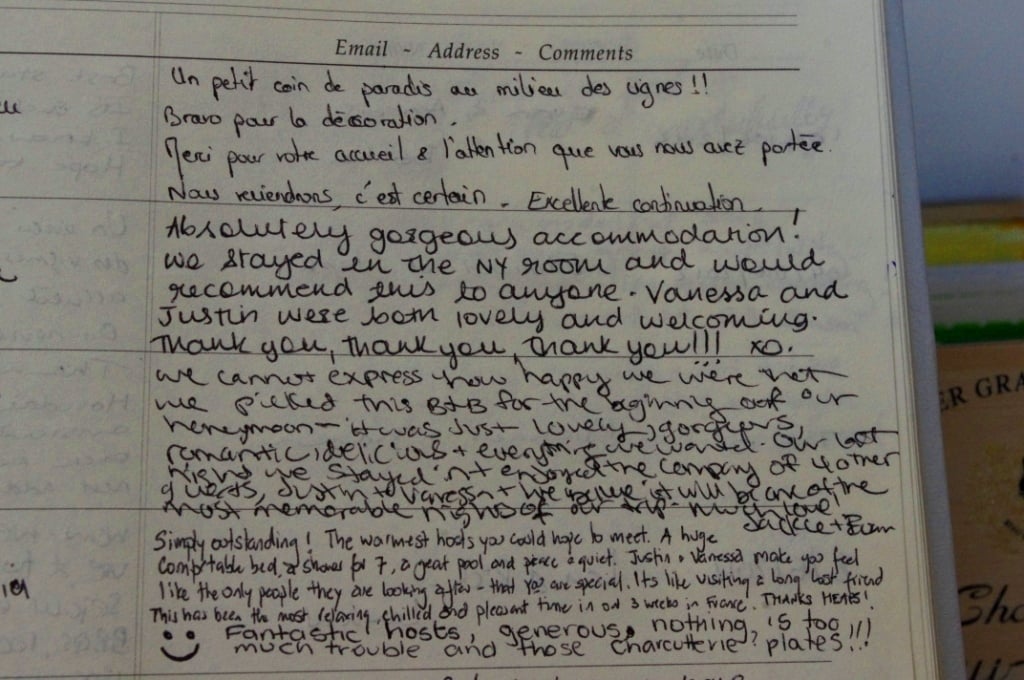 Email - Address - Comments
Un petit coin de paradis au milieu des vignes !!
Bravo pour la décoration.
Merci pour votre accueil & l'attention que vous nous avez portée.
Nous reviendrons, c'est certain. Excellente continuation.
Absolutely gorgeous accommodation!
We stayed in the NY room and would
recommend this to anyone. Vanessa and
Justin were both lovely and welcoming.
Thank you, thank you, thank you!!! xo.
We cannot express how happy we were that
we picked this B+B for the beginning of our
honeymoon - it was just lovely, gorgeous,
romantic, delicious + everything we wanted. Our last
night we stayed in + enjoyed the company of 4 other
guests, Justin + Vanessa + we believe it will be one of the
most memorable nights of our trip. Much love!
Jackie + Evan
Simply outstanding! The warmest hosts you could hope to meet. A huge
comfortable bed, a shower for 7, a great pool and peace & quiet. Justin + Vanessa make you feel
like the only people they are looking after - that you are special. Its like visiting a long lost friend
This has been the most relaxing, chilled and pleasant time in our 3 weeks in France. THANKS HEAPS!
Fantastic hosts, generous, nothing is too
much trouble and those charcutterie? plates!!!
ER GRA
Cho